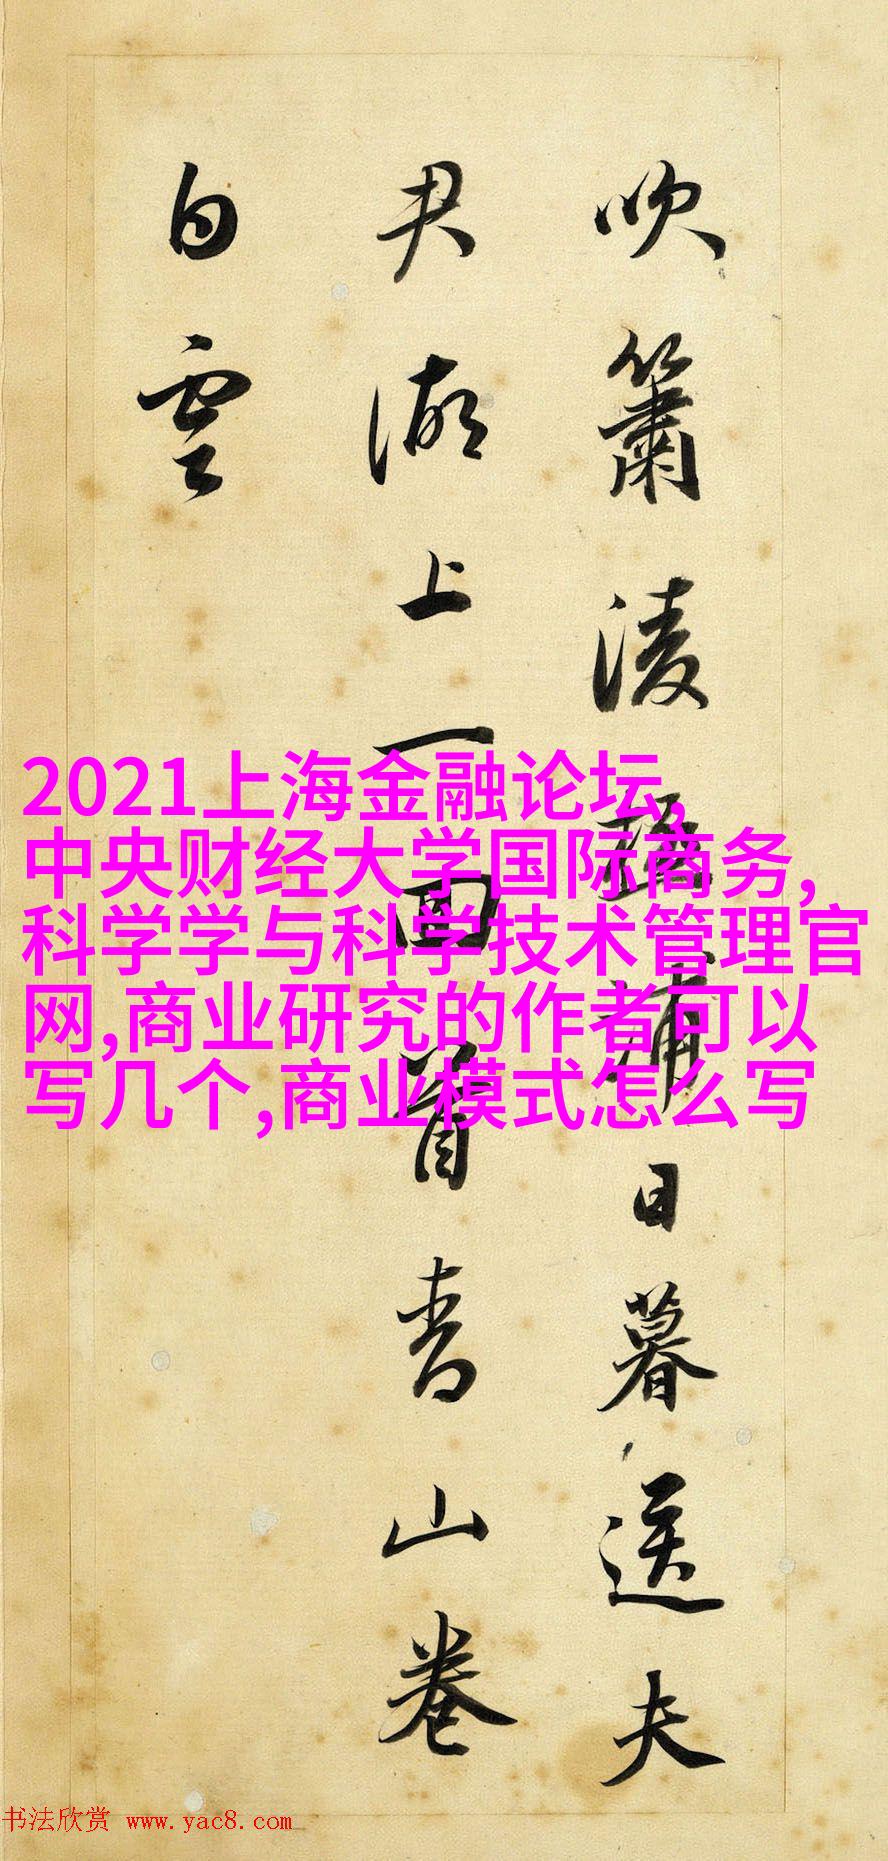 吹簫淩極浦日暮送夫
君湖上一回首青山卷
白雲
2021上海金融论坛,
中央财经大学国际商务,
科学学与科学技术管理官
网,商业研究的作者可以
写几个,商业模式怎么写
书法欣赏 www.yac8.com